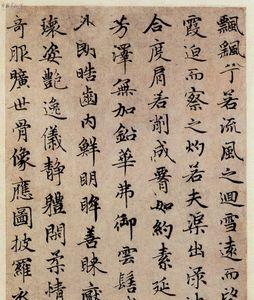 飄飄兮若流風之迴雪遠而望
霞迫而察之灼若夫渠出淥
合度肩若削成腰如約素延
芳澤無加鉛華弗御雲髻
外朗皓齒內鮮明眸善睞靨
瓌姿艷逸儀靜體閑柔情
奇服曠世骨像應圖披羅衣